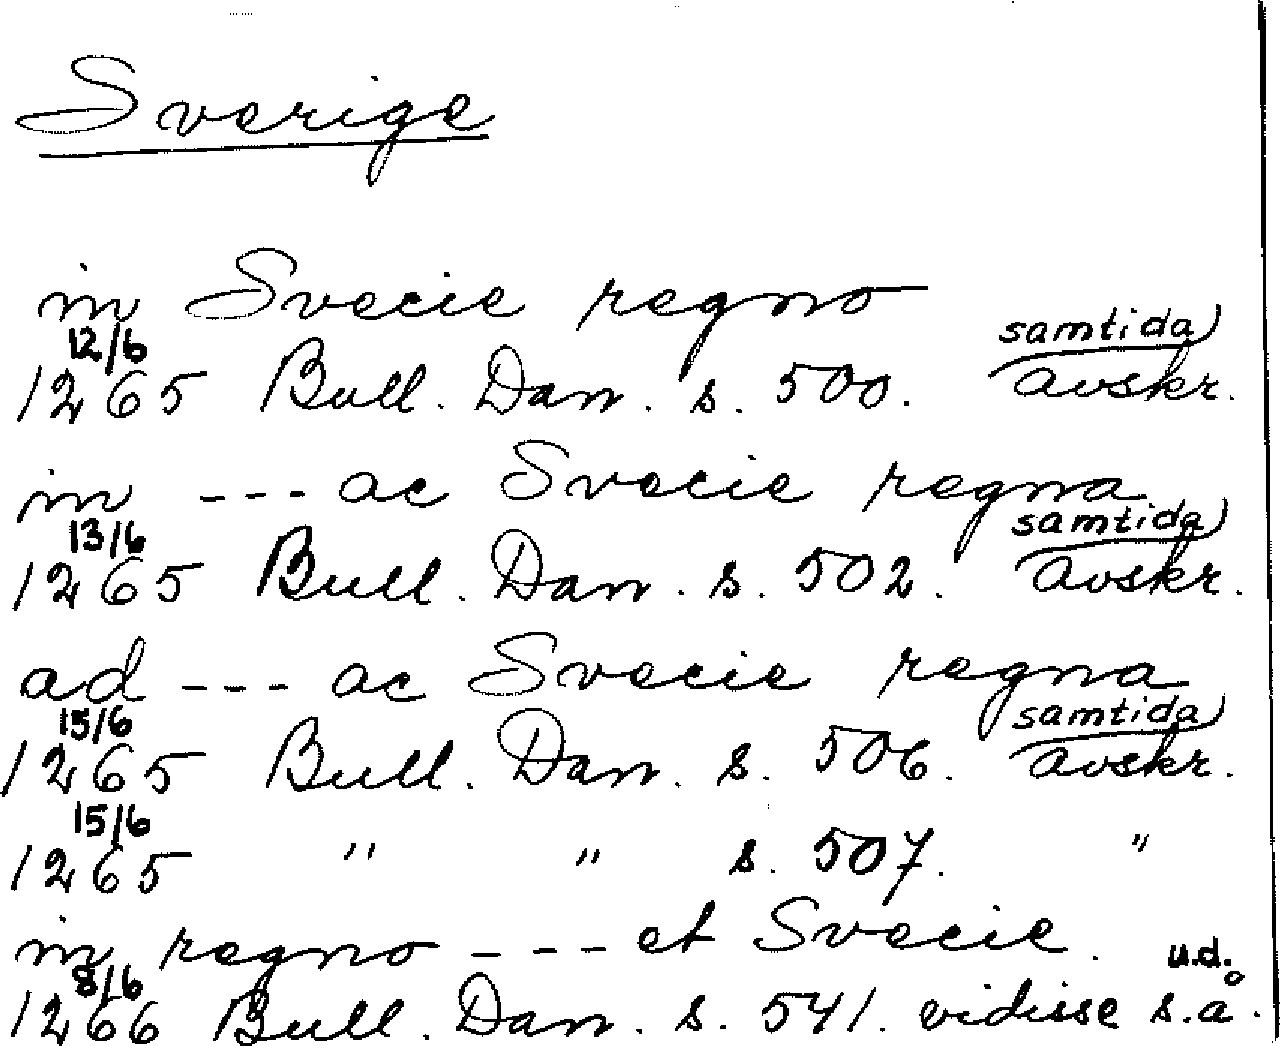 Sverige
in Svecie regno
12/6 samtida
1265 Bull. Dan. s. 500. avskr.
in --- ac Svecie regna
13/6 samtida
1265 Bull. Dan. s. 502. avskr.
ad --- ac Svecie regna
15/6 samtida
1265 Bull. Dan. s. 506. avskr.
15/6
1265 " " s. 507. "
in regno --- et Svecie.
8/6 u.d.
1266 Bull. Dan. s. 541. vidisse s.å.